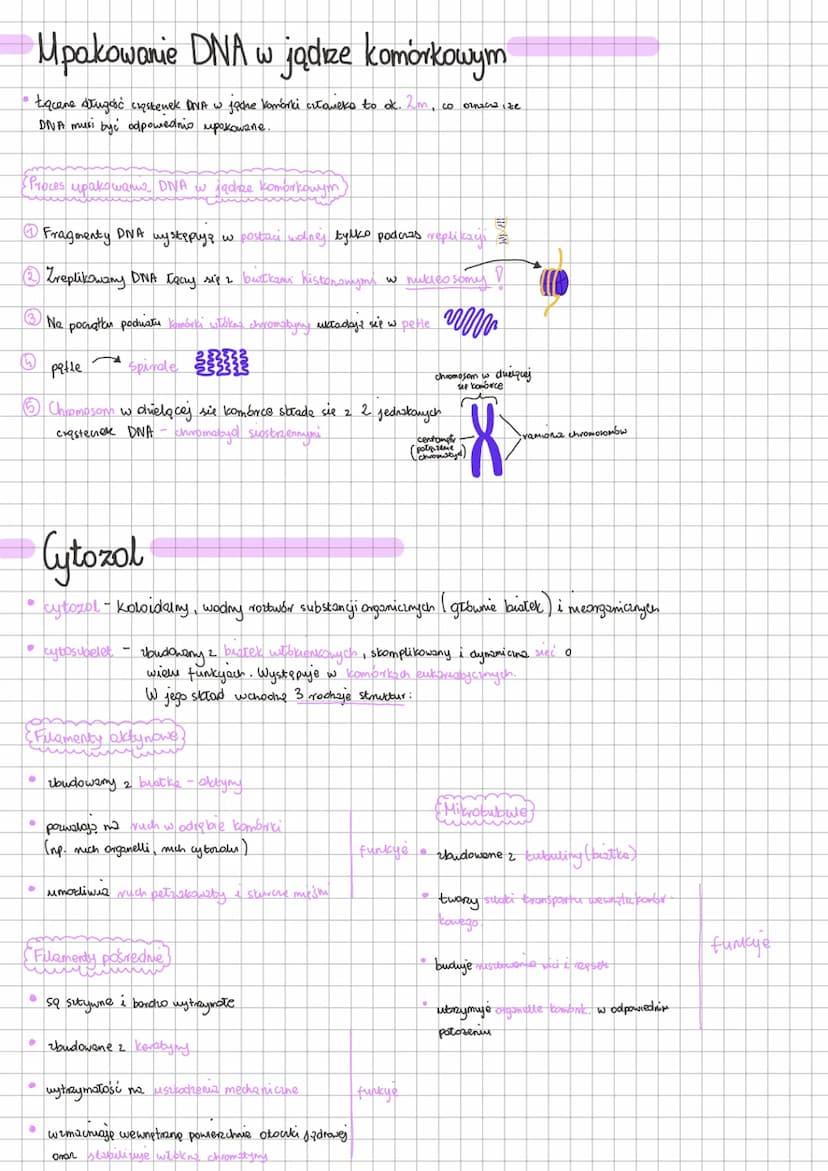 Upakowanie DNA w jądrze komórkowym
• Łączna długość cząsteczek DNA w jądrze komórki człowieka to ok. 2m, co oznacza że
DNA musi być odpowiednio upakowane.
Proces upakowania DNA w jądrze komórkowym
① Fragmenty DNA występują w postaci wolnej tylko podczas replikacji
② Zreplikowany DNA łączy się z białkami histonowymi w nukleosomy!
③ Na początku podziału komórki włókna chromatyny układają się w pętle
④ pętle → spirale
chromosom w dzielącej
się komórce
⑤ Chromosom w dzielącej się komórce składa się z 2 jednakowych
cząsteczek DNA - chromatyd siostrzennymi
centromer
(połączenie
chromatyd)
ramiona chromosomów
Cytozol
• cytozol - koloidalny, wodny roztwór substancji organicznych (głównie białek) i nieorganicznych
• cytoszkielet - zbudowany z białek włókienkowych, skomplikowany i dynamiczna sieć o
wielu funkcjach. Występuje w komórkach eukariotycznych.
W jego skład wchodzą 3 rodzaje struktur:
Filamenty aktynowe
• zbudowany z białka - aktyny
• pozwalają na ruch w odrębie komórki
(np. ruch organelli, ruch cytozolu)
• umożliwia ruch pełzakowaty i skurcze mięśni
funkcje
Filamenty pośrednie
• są sztywne i bardzo wytrzymałe
• zbudowane z keratyny
• wytrzymałość na uszkodzenia mechaniczne
• wzmacniają wewnętrzną powierzchnie otoczki jądrowej
oraz stabilizuje włókna chromatyny
funkcje
Mikrotubule
• zbudowane z tubuliny (białka)
• tworzy szlaki transportu wewnątrzkomór-
kowego.
• buduje rusztowania wici i rzęsek
• utrzymuje organelle komórk. w odpowiednim
położeniu
funkcje